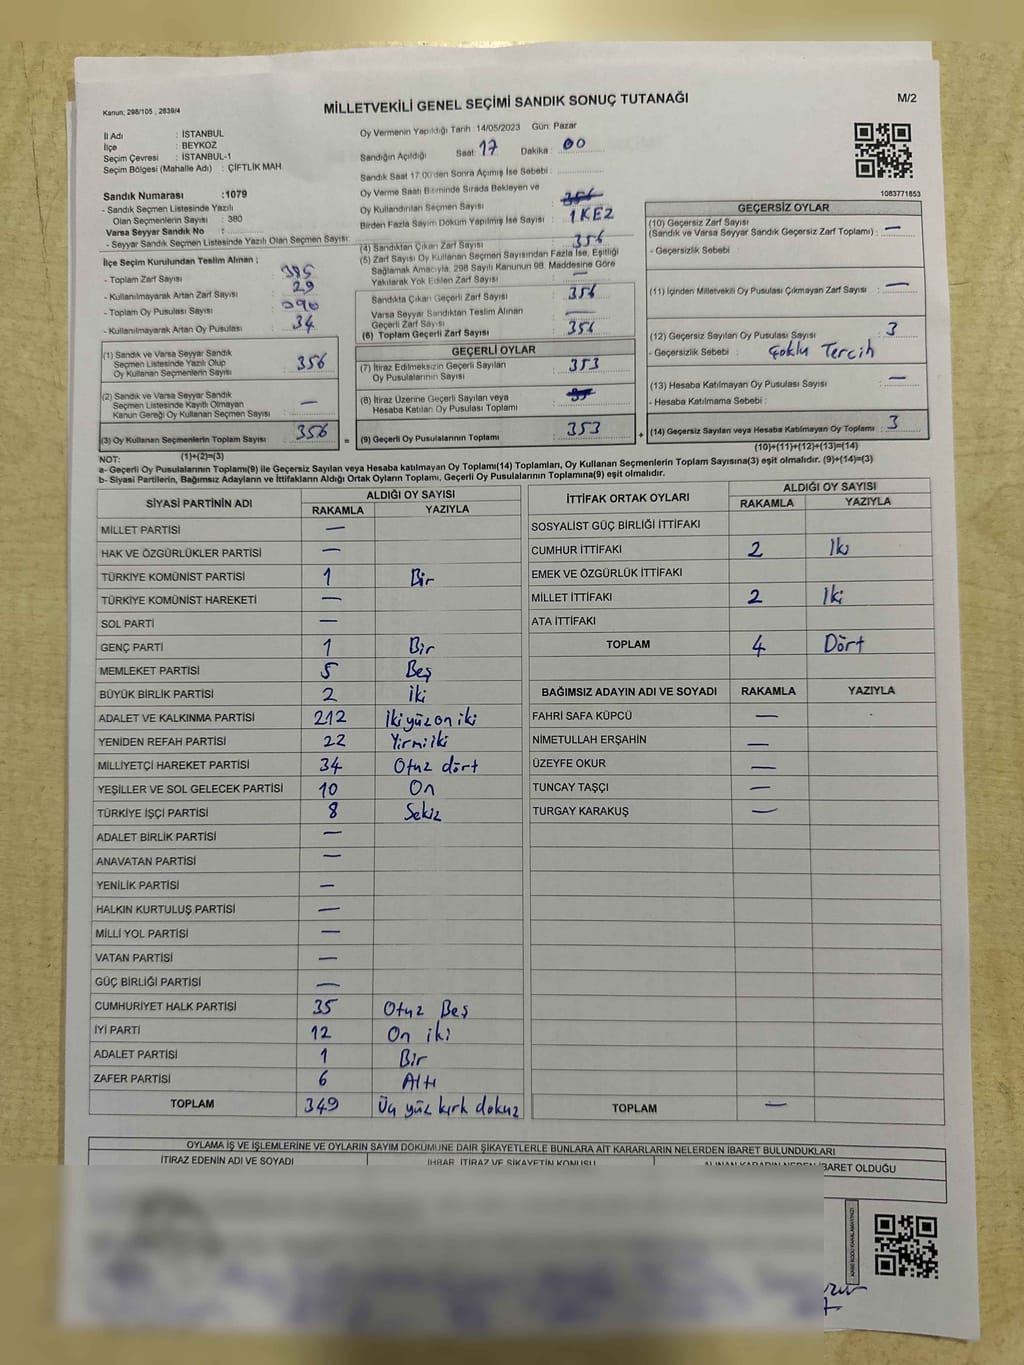 Kanun: 298/105 , 2839/4
MİLLETVEKİLİ GENEL SEÇİMİ SANDIK SONUÇ TUTANAĞI
M/2
İl Adı : İSTANBUL
İlçe : BEYKOZ
Seçim Çevresi : İSTANBUL-1
Seçim Bölgesi (Mahalle Adı) : ÇİFTLİK MAH.
Sandık Numarası :1079
- Sandık Seçmen Listesinde Yazılı
Olan Seçmenlerin Sayısı : 380
Varsa Seyyar Sandık No :
- Seyyar Sandık Seçmen Listesinde Yazılı Olan Seçmen Sayısı:
İlçe Seçim Kurulundan Teslim Alınan ;
- Toplam Zarf Sayısı 385
- Kullanılmayarak Artan Zarf Sayısı 29
- Toplam Oy Pusulası Sayısı 390
- Kullanılmayarak Artan Oy Pusulası 34
(1) Sandık ve Varsa Seyyar Sandık
Seçmen Listesinde Yazılı Olup
Oy Kullanan Seçmenlerin Sayısı 356
(2) Sandık ve Varsa Seyyar Sandık
Seçmen Listesinde Kayıtlı Olmayan
Kanun Gereği Oy Kullanan Seçmen Sayısı —
(3) Oy Kullanan Seçmenlerin Toplam Sayısı 356 =
(1)+(2)=(3)
Oy Vermenin Yapıldığı Tarih :14/05/2023 Gün: Pazar
Sandığın Açıldığı Saat 17 Dakika : 00
Sandık Saat 17:00'den Sonra Açımış İse Sebebi :
Oy Verme Saati Bitiminde Sırada Bekleyen ve
Oy Kullandırılan Seçmen Sayısı :
Birden Fazla Sayım Döküm Yapılmış İse Sayısı : 1 KEZ
(4) Sandıktan Çıkan Zarf Sayısı 356
(5) Zarf Sayısı Oy Kullanan Seçmen Sayısından Fazla İse, Eşitliği
Sağlamak Amacıyla, 298 Sayılı Kanunun 98. Maddesine Göre
Yakılarak Yok Edilen Zarf Sayısı —
Sandıkta Çıkan Geçerli Zarf Sayısı 356
Varsa Seyyar Sandıktan Teslim Alınan
Geçerli Zarf Sayısı —
(6) Toplam Geçerli Zarf Sayısı 356
GEÇERLİ OYLAR
(7) İtiraz Edilmeksizin Geçerli Sayılan
Oy Pusulalarının Sayısı 353
(8) İtiraz Üzerine Geçerli Sayılan veya
Hesaba Katılan Oy Pusulası Toplamı
(9) Geçerli Oy Pusulalarının Toplamı 353 +
1083771853
GEÇERSİZ OYLAR
(10) Geçersiz Zarf Sayısı
(Sandık ve Varsa Seyyar Sandık Geçersiz Zarf Toplamı) : —
- Geçersizlik Sebebi :
(11) İçinden Milletvekili Oy Pusulası Çıkmayan Zarf Sayısı : —
(12) Geçersiz Sayılan Oy Pusulası Sayısı : 3
- Geçersizlik Sebebi : Çoklu Tercih
(13) Hesaba Katılmayan Oy Pusulası Sayısı : —
- Hesaba Katılmama Sebebi :
(14) Geçersiz Sayılan veya Hesaba Katılmayan Oy Toplamı : 3
(10)+(11)+(12)+(13)=(14)
NOT:
a- Geçerli Oy Pusulalarının Toplamı(9) ile Geçersiz Sayılan veya Hesaba katılmayan Oy Toplamı(14) Toplamları, Oy Kullanan Seçmenlerin Toplam Sayısına(3) eşit olmalıdır. (9)+(14)=(3)
b- Siyasi Partilerin, Bağımsız Adayların ve İttifakların Aldığı Ortak Oyların Toplamı, Geçerli Oy Pusulalarının Toplamına(9) eşit olmalıdır.
SİYASİ PARTİNİN ADI ALDIĞI OY SAYISI
RAKAMLA YAZIYLA
MİLLET PARTİSİ —
HAK VE ÖZGÜRLÜKLER PARTİSİ —
TÜRKİYE KOMÜNİST PARTİSİ 1 Bir
TÜRKİYE KOMÜNİST HAREKETİ —
SOL PARTİ —
GENÇ PARTİ 1 Bir
MEMLEKET PARTİSİ 5 Beş
BÜYÜK BİRLİK PARTİSİ 2 iki
ADALET VE KALKINMA PARTİSİ 212 İki yüz on iki
YENİDEN REFAH PARTİSİ 22 Yirmi iki
MİLLİYETÇİ HAREKET PARTİSİ 34 Otuz dört
YEŞİLLER VE SOL GELECEK PARTİSİ 10 On
TÜRKİYE İŞÇİ PARTİSİ 8 Sekiz
ADALET BİRLİK PARTİSİ —
ANAVATAN PARTİSİ —
YENİLİK PARTİSİ —
HALKIN KURTULUŞ PARTİSİ —
MİLLİ YOL PARTİSİ —
VATAN PARTİSİ —
GÜÇ BİRLİĞİ PARTİSİ —
CUMHURİYET HALK PARTİSİ 35 Otuz Beş
İYİ PARTİ 12 On iki
ADALET PARTİSİ 1 Bir
ZAFER PARTİSİ 6 Altı
TOPLAM 349 Üç yüz kırk dokuz
İTTİFAK ORTAK OYLARI ALDIĞI OY SAYISI
RAKAMLA YAZIYLA
SOSYALİST GÜÇ BİRLİĞİ İTTİFAKI
CUMHUR İTTİFAKI 2 İki
EMEK VE ÖZGÜRLÜK İTTİFAKI
MİLLET İTTİFAKI 2 İki
ATA İTTİFAKI
TOPLAM 4 Dört
BAĞIMSIZ ADAYIN ADI VE SOYADI RAKAMLA YAZIYLA
FAHRİ SAFA KÜPCÜ —
NİMETULLAH ERŞAHİN —
ÜZEYFE OKUR —
TUNCAY TAŞÇI —
TURGAY KARAKUŞ —
TOPLAM —
OYLAMA İŞ VE İŞLEMLERİNE VE OYLARIN SAYIM DÖKÜMÜNE DAİR ŞİKAYETLERLE BUNLARA AİT KARARLARIN NELERDEN İBARET BULUNDUKLARI
İTİRAZ EDENİN ADI VE SOYADI İHBAR, İTİRAZ VE ŞİKAYETİN KONUSU ALINAN KARARIN NEDEN İBARET OLDUĞU